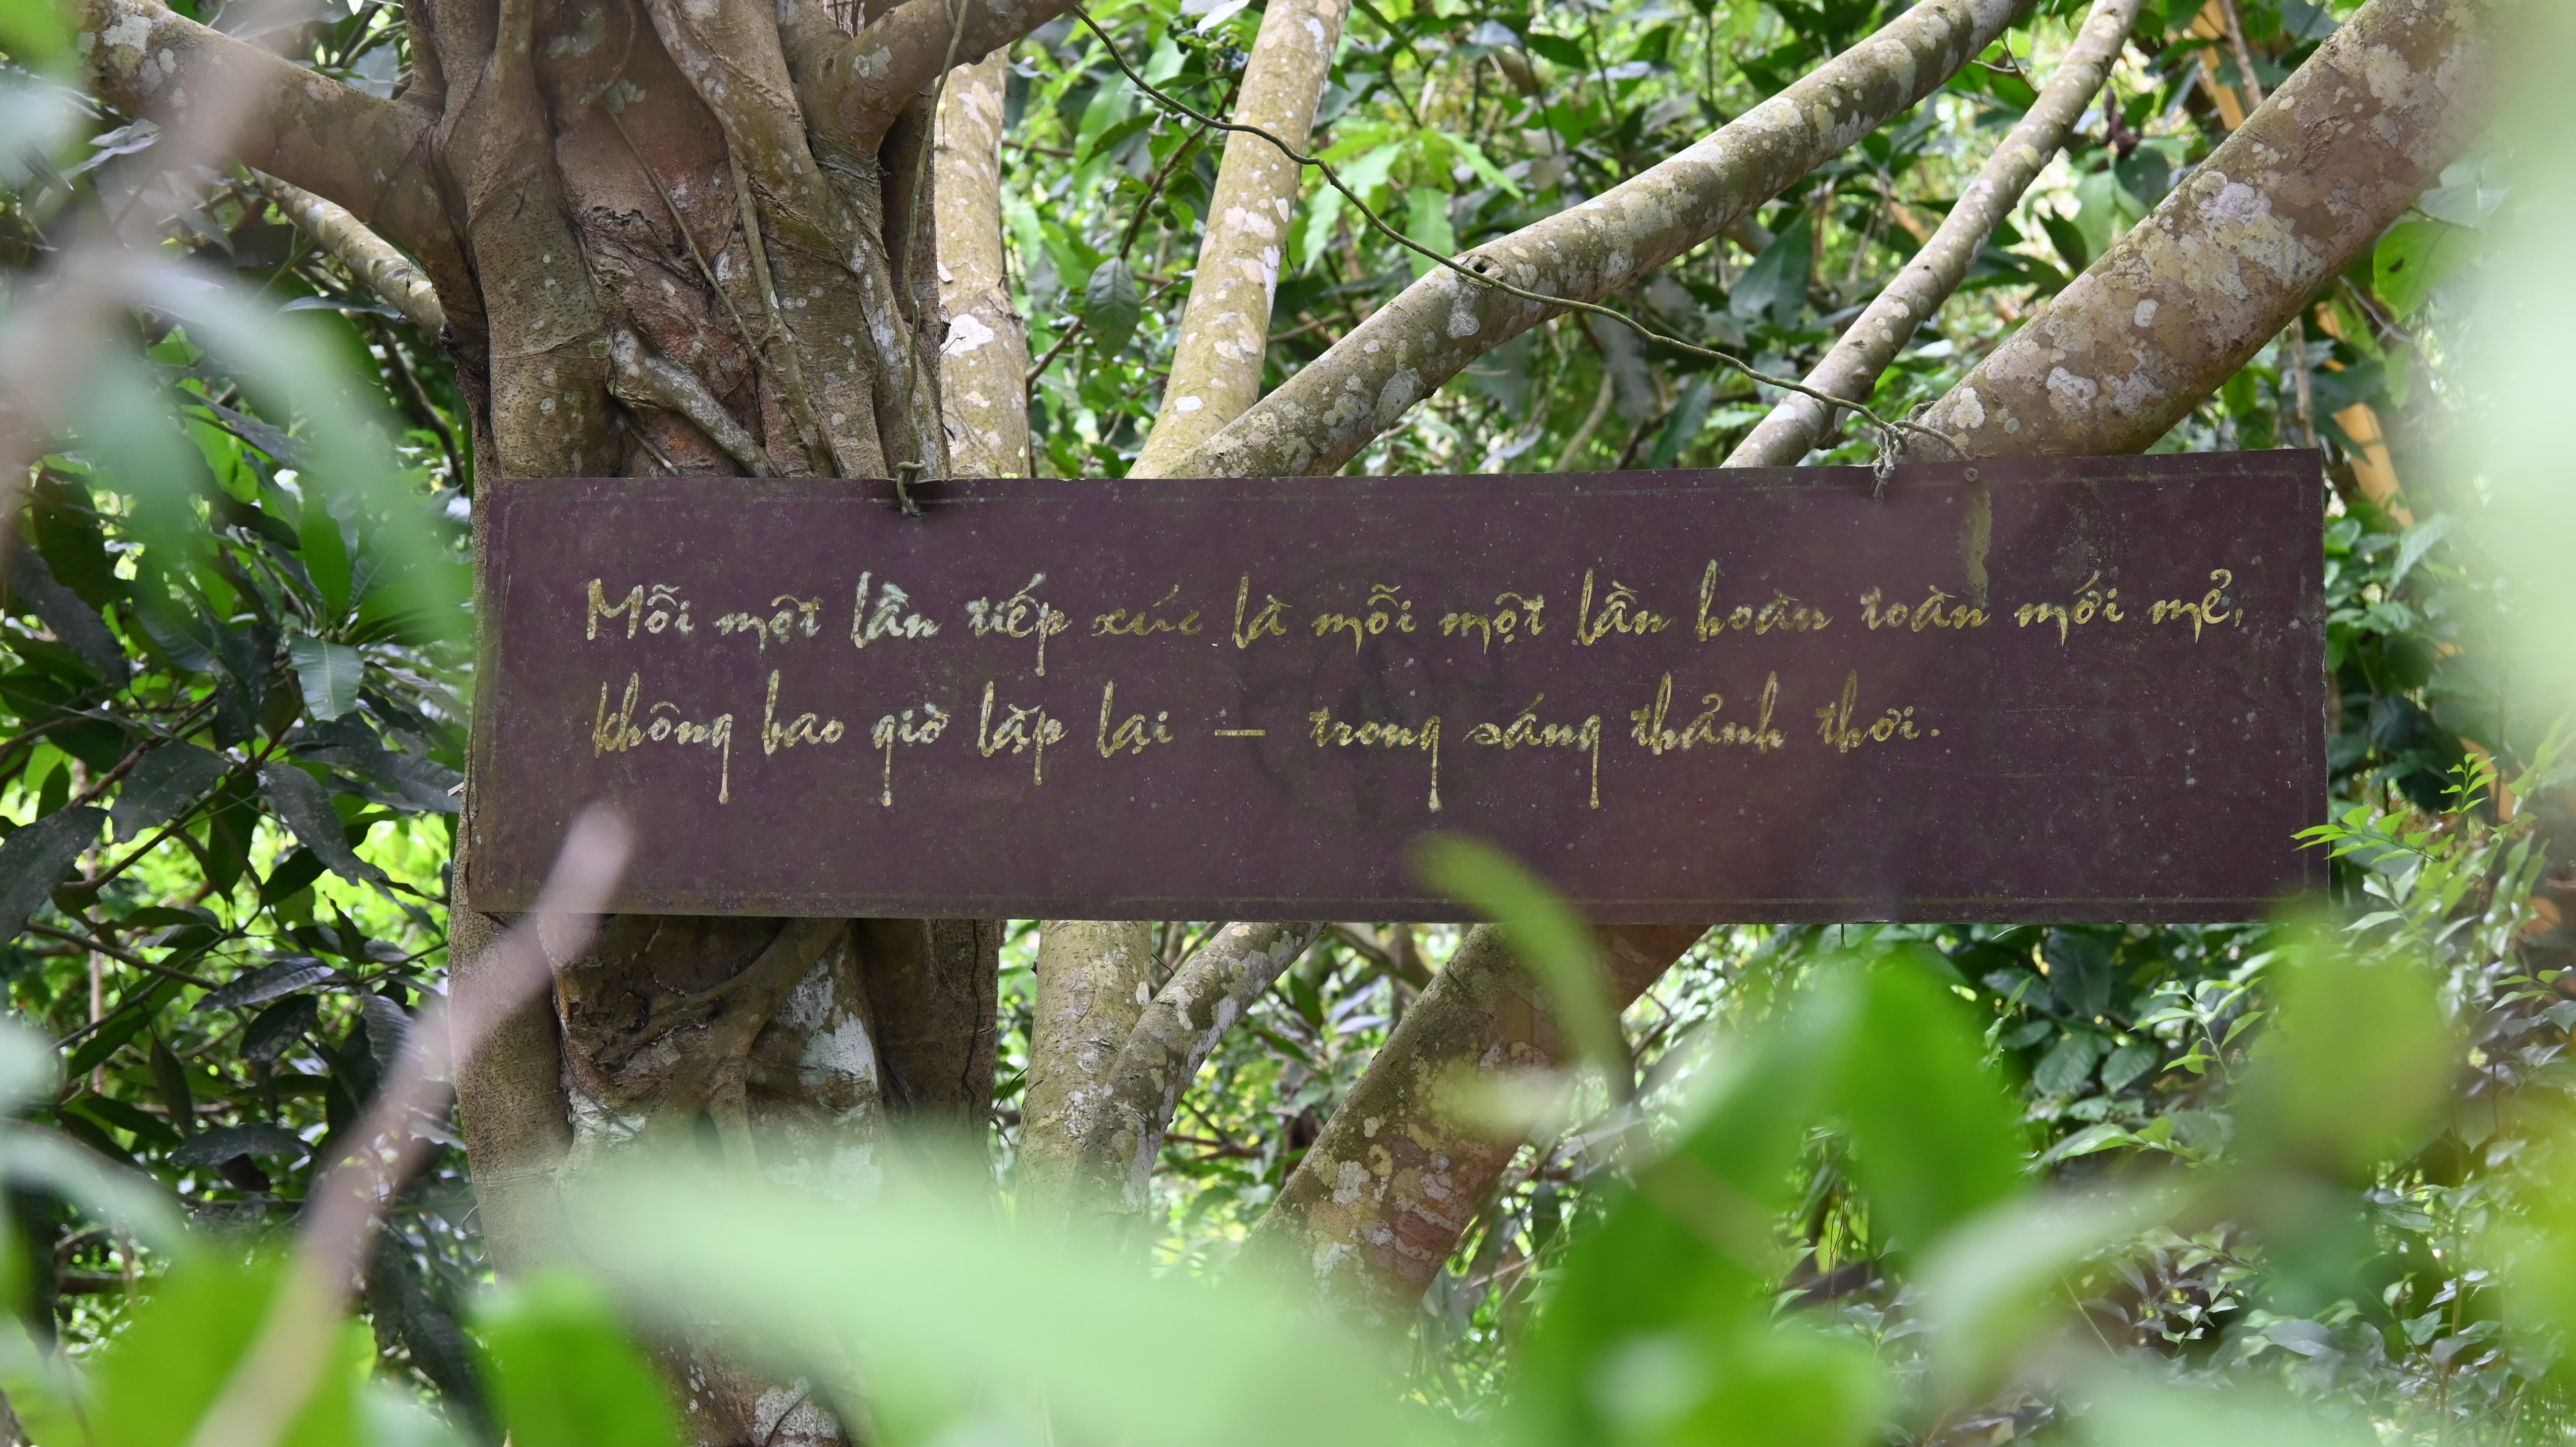 Mỗi một lần tiếp xúc là mỗi một lần hoàn toàn mới mẻ,
không bao giờ lặp lại — trong sáng thảnh thơi.